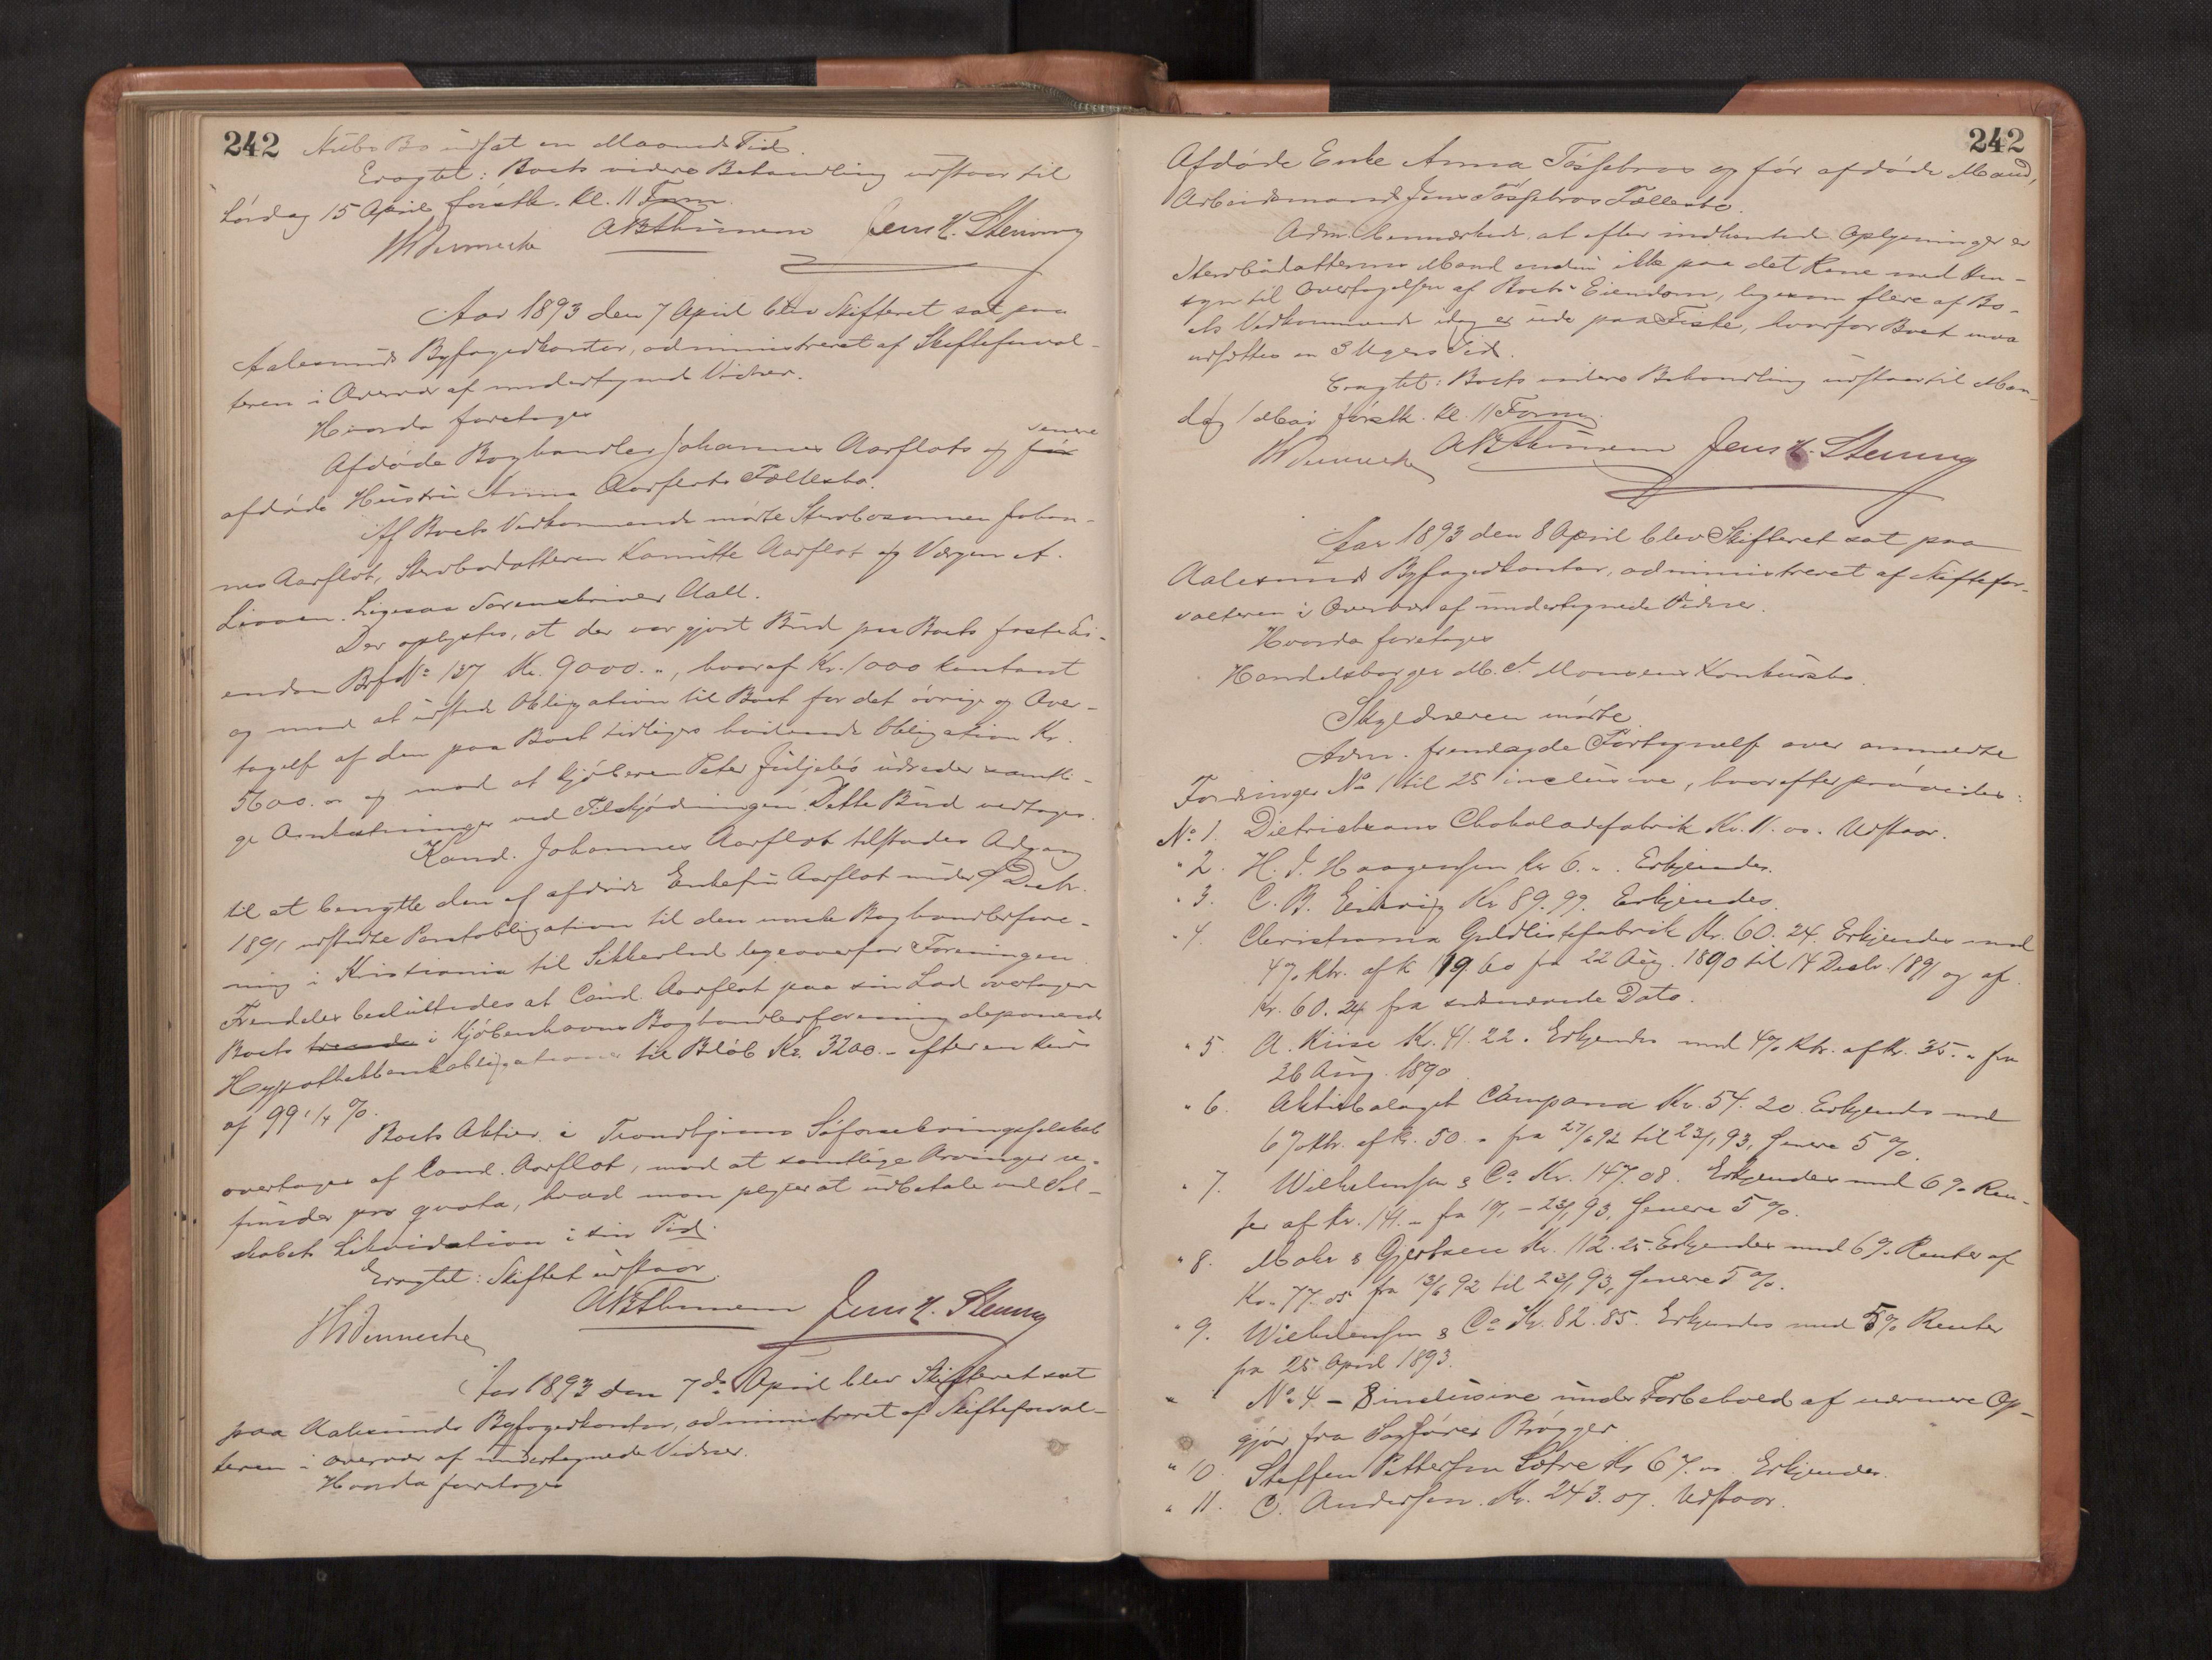 242
Bo udsat en Maaneds Tid.
Eragtet: Boets videre Behandling udstaar til
Lördag 15 April förstk. Kl. 11 Form.
Jens H. Stenning
Aar 1893 den 7 April blev Skifteret sat paa
Aalesunds Byfogedkontor, administreret af Skifteforval-
teren i Overvær af undertegnede Vidner.
Hvorda foretoges
Afdøde Boghandler Johannes Aarflots og för senere
afdøde Hustru Anna Aarflots Fællesbo.
Af Boets Vedkommende mødte Stervbosønnen Johan-
nes Aarflot, Stervbodatteren Kamitte Aarflot og Værgen A.
Ligesaa Sorenskriver Aall.
Der oplystes, at der var gjort Bud paa Boets faste Ei-
endom Brf No 137 Kr. 9000. ", hvoraf Kr. 1000 kontant
og mod at udsted Obligation til Boet for det övrige og Over-
tagelse af den paa Boet tidligere heftende Obligation Kr.
5600. " og mod at Kjöberen Peter udreder samtli-
ge Omkostninger ved Tilskjödningen. Dette Bud vedtages.
Kand. Johannes Aarflot tilstodes Adgang
til at benytte den af afdøde Enkefru Aarflot under 9 Decbr.
1891 udstedte Pantobligation til den norske Boghandlerfore-
ning i Kristiania til Sikkerhed ligeoverfor Foreningen.
Fremdeles besluttedes at Cand. Aarflot paa sin Lod overtager
Boets i Kjöbenhavns Boghandlerforening deponerede
Hypothekbankobligationer til Beløb Kr. 3200. - efter en Kurs
af 99 1/4 %.
Boets Aktier i Trondhjems Söforsikringsselskab
overtages af Cand. Aarflot, mod at samtlige Arvinger re-
funder pro qvota, hvad man pligter at udbetale ved Sel-
skabets Likvidation i sin Tid.
Eragtet: Skiftet udstaar.
Jens H. Stenning
Aar 1893 den 7de April blev Skifteret sat
paa Aalesunds Byfogedkontor, administreret af Skifteforval-
teren i Overvær af undertegnede Vidner.
Hvorda foretoges
242
Afdøde Enke Anna Tössebros og för afdøde Mand,
Arbeidsmand Jens Tössebros Fællesbo.
Adm. bemærkede, at efter indhentede Oplysninger er
Stervbodatterens Mand endnu ikke paa det Rene med Hen-
syn til Overtagelsen af Boets Eiendom, ligesom flere af Bo-
ets Vedkommende idag er ude paa Fiske, hvorfor Boet maa
udsættes en 3 Ugers Tid.
Eragtet: Boets videre Behandling udstaar til Man-
dag 1 Mai förstk. Kl. 11 Form.
Jens H. Stenning
Aar 1893 den 8 April blev Skifteret sat paa
Aalesunds Byfogedkontor, administreret af Skiftefor-
valteren i Overvær af undertegnede Vidner.
Hvorda foretoges
Handelsborger M. A. Monsens Konkursbo.
Skyldneren mödte.
Adm. fremlagde Fortegnelse over anmeldte
Fordringer No 1 til 25 inclusive, hvorefter prövedes:
No 1. Dietrichsons Chokoladefabrik Kr. 11.00. Udstaar.
" 2. H. J. Haagensen Kr 6. ". Erkjendes.
" 3. C. B. Kr 89.99. Erkjendes.
" 4. Christiania Guldlistefabrik Kr. 60.24. Erkjendes med
4 % Rtr. af K 119.60 fra 22 Aug. 1890 til 14 Decbr. 1891 og af
Kr. 60.24 fra sidstnævnte Dato.
" 5. A. Kr. 41.22. Erkjendes med 4 % Rtr. af Kr. 35. " fra
26 Aug. 1890.
" 6. Aktiebolaget Campana Kr. 54.20. Erkjendes med
6 % Rtr. af Kr. 50. " fra 27/6 92 til 23/1 93, senere 5 %.
" 7. Wilhelmsen & Co Kr. 147.08. Erkjendes med 6 % Ren-
ter af Kr. 141. " fra - 23/1 93, senere 5 %.
" 8. Mohr & Gjertsen Kr. 112.25. Erkjendes med 6 % Renter af
Kr. 77.05 fra 13/6 92 til 23/1 93, senere 5 %.
" 9. Wilhelmsen & Co Kr. 82.85. Erkjendes med 5 % Renter
fra 25 April 1893.
" No 4. - 8 inclusive under Forbehold af nærmere Op-
gjör fra Sagförer Brögger.
" 10. Steffen Pettersen Sætre Kr 67. " Erkjendes.
" 11. C. Andersen. Kr. 243.07. Udstaar.